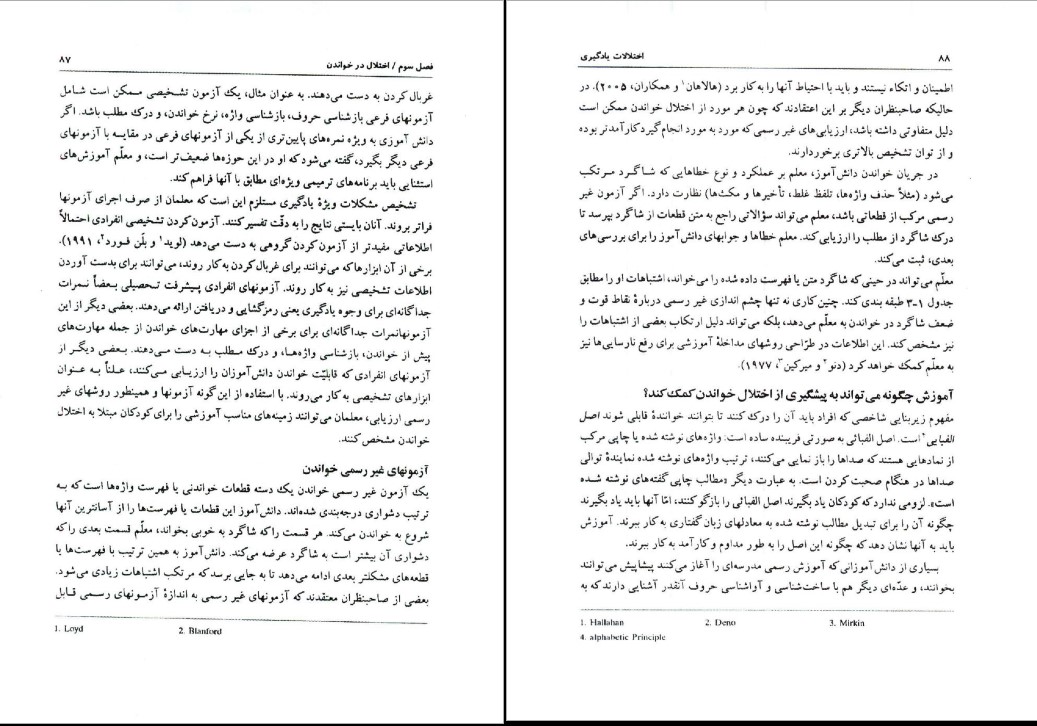 فصل سوم / اختلال در خواندن ۸۷
غربال کردن به دست می‌دهند. به عنوان مثال، یک آزمون تشخیصی ممکن است شامل
آزمونهای فرعی بازشناسی حروف، بازشناسی واژه، نرخ خواندن، و درک مطلب باشد. اگر
دانش آموزی به ویژه نمره‌های پایین‌تری از یکی از آزمونهای فرعی در مقایسه با آزمونهای
فرعی دیگر بگیرد، گفته می‌شود که او در این حوزه‌ها ضعیف‌تر است، و معلّم آموزش‌های
استثنایی باید برنامه‌های ترمیمی ویژه‌ای مطابق با آنها فراهم کند.
تشخیص مشکلات ویژهٔ یادگیری مستلزم این است که معلمان از صرف اجرای آزمونها
فراتر بروند. آنان بایستی نتایج را به دقّت تفسیر کنند. آزمون کردن تشخیصی انفرادی احتمالاً
اطلاعاتی مفیدتر از آزمون کردن گروهی به دست می‌دهد (لوید۱ و بلن فورد۲، ۱۹۹۱).
برخی از آن ابزارها که می‌توانند برای غربال کردن به کار روند، می‌توانند برای بدست آوردن
اطلاعات تشخیصی نیز به کار روند. آزمونهای انفرادی پیشرفت تحصیلی بعضاً نمرات
جداگانه‌ای برای وجوه یادگیری یعنی رمزگشایی و دریافتن ارائه می‌دهند. بعضی دیگر از این
آزمونهانمرات جداگانه‌ای برای برخی از اجزای مهارت‌های خواندن از جمله مهارت‌های
پیش از خواندن، بازشناسی واژه‌ها، و درک مطلب به دست می‌دهند. بعضی دیگر از
آزمونهای انفرادی که قابلیّت خواندن دانش‌آموزان را ارزیابی می‌کنند، علناً به عنوان
ابزارهای تشخیصی به کار می‌روند. با استفاده از این گونه آزمونها و همینطور روشهای غیر
رسمی ارزیابی، معلمان می‌توانند زمینه‌های مناسب آموزشی را برای کودکان مبتلا به اختلال
خواندن مشخص کنند.
آزمونهای غیر رسمی خواندن
یک آزمون غیر رسمی خواندن یک دسته قطعات خواندنی یا فهرست واژه‌ها است که به
ترتیب دشواری درجه‌بندی شده‌اند. دانش‌آموز این قطعات یا فهرست‌ها را از آسانترین آنها
شروع به خواندن می‌کند. هر قسمت را که شاگرد به خوبی بخواند، معلّم قسمت بعدی را که
دشواری آن بیشتر است به شاگرد عرضه می‌کند. دانش‌آموز به همین ترتیب با فهرست‌ها یا
قطعه‌های مشکلتر بعدی ادامه می‌دهد تا به جایی برسد که مرتکب اشتباهات زیادی می‌شود.
بعضی از صاحبنظران معتقدند که آزمونهای غیر رسمی به اندازهٔ آزمونهای رسمی قابل
1. Loyd 2. Blanford
۸۸ اختلالات یادگیری
اطمینان و اتکاء نیستند و باید با احتیاط آنها را به کار برد (هالاهان۱ و همکاران، ۲۰۰۵). در
حالیکه صاحبنظران دیگر بر این اعتقادند که چون هر مورد از اختلال خواندن ممکن است
دلیل متفاوتی داشته باشد، ارزیابی‌های غیر رسمی که مورد به مورد انجام گیرد کارآمدتر بوده
و از توان تشخیص بالاتری برخوردارند.
در جریان خواندن دانش‌آموز، معلم بر عملکرد و نوع خطاهایی که شاگرد مرتکب
می‌شود (مثلاً حذف واژه‌ها، تلفظ غلط، تأخیرها و مکث‌ها) نظارت دارد. اگر آزمون غیر
رسمی مرکب از قطعاتی باشد، معلم می‌تواند سؤالاتی راجع به متن قطعات از شاگرد بپرسد تا
درک شاگرد از مطلب را ارزیابی کند. معلم خطاها و جوابهای دانش‌آموز را برای بررسی‌های
بعدی، ثبت می‌کند.
معلّم می‌تواند در حینی که شاگرد متن یا فهرست داده شده را می‌خواند، اشتباهات او را مطابق
جدول ۱-۳ طبقه بندی کند. چنین کاری نه تنها چشم اندازی غیر رسمی دربارهٔ نقاط قوت و
ضعف شاگرد در خواندن به معلّم می‌دهد، بلکه می‌تواند دلیل ارتکاب بعضی از اشتباهات را
نیز مشخص کند. این اطلاعات در طرّاحی روشهای مداخلهٔ آموزشی برای رفع نارسایی‌ها نیز
به معلّم کمک خواهد کرد (دنو۲ و میرکین۳، ۱۹۷۷).
آموزش چگونه می‌تواند به پیشگیری از اختلال خواندن کمک کند؟
مفهوم زیربنایی شاخصی که افراد باید آن را درک کنند تا بتوانند خوانندهٔ قابلی شوند اصل
الفبایی۴ است. اصل الفبائی به صورتی فریبنده ساده است: واژه‌های نوشته شده یا چاپی مرکب
از نمادهایی هستند که صداها را باز نمایی می‌کنند، ترتیب واژه‌های نوشته شده نمایندهٔ توالی
صداها در هنگام صحبت کردن است. به عبارت دیگر «مطالب چاپی گفته‌های نوشته شده
است». لزومی ندارد که کودکان یاد بگیرند اصل الفبائی را بازگو کنند، امّا آنها باید یاد بگیرند
چگونه آن را برای تبدیل مطالب نوشته شده به معادلهای زبان گفتاری به کار ببرند. آموزش
باید به آنها نشان دهد که چگونه این اصل را به طور مداوم و کارآمد به کار ببرند.
بسیاری از دانش‌آموزانی که آموزش رسمی مدرسه‌ای را آغاز می‌کنند پیشاپیش می‌توانند
بخوانند، و عدّه‌ای دیگر هم با ساخت‌شناسی و آواشناسی حروف آنقدر آشنایی دارند که به
1. Hallahan 2. Deno 3. Mirkin
4. alphabetic Principle